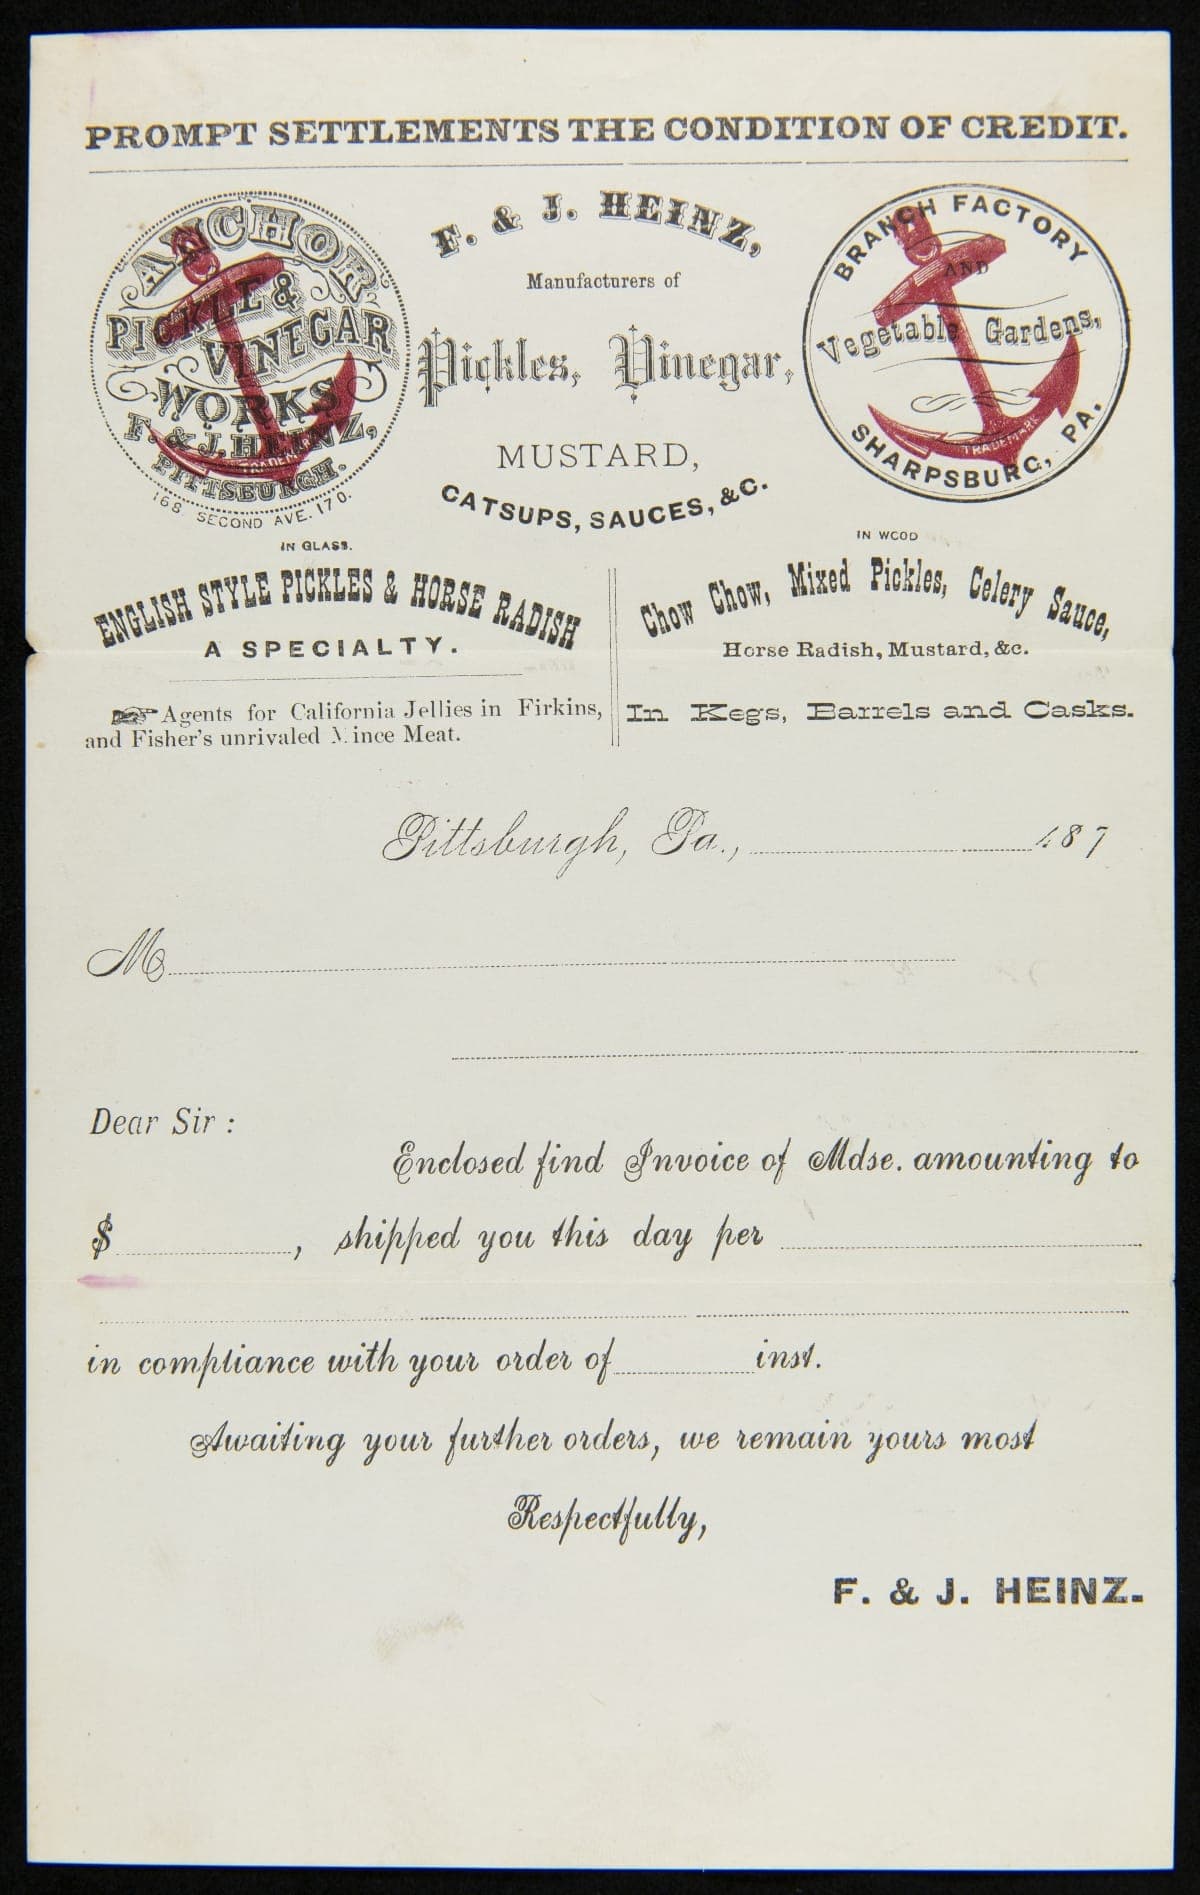 PROMPT SETTLEMENTS THE CONDITION OF CREDIT.
ANCHOR
PICKLE &
VINEGAR
WORKS
F. & J. HEINZ,
TRADEMARK
PITTSBURGH.
168 SECOND AVE. 170.
F. & J. HEINZ,
Manufacturers of
Pickles, Vinegar,
MUSTARD,
CATSUPS, SAUCES, &C.
BRANCH FACTORY
AND
Vegetable Gardens,
TRADEMARK
SHARPSBURG, PA.
IN GLASS.
ENGLISH STYLE PICKLES & HORSE RADISH
A SPECIALTY.
☞ Agents for California Jellies in Firkins,
and Fisher's unrivaled Mince Meat.
IN WOOD
Chow Chow, Mixed Pickles, Celery Sauce,
Horse Radish, Mustard, &c.
In Kegs, Barrels and Casks.
Pittsburgh, Pa., 187
M
Dear Sir :
Enclosed find Invoice of Mdse. amounting to
$ , shipped you this day per
in compliance with your order of inst.
Awaiting your further orders, we remain yours most
Respectfully,
F. & J. HEINZ.